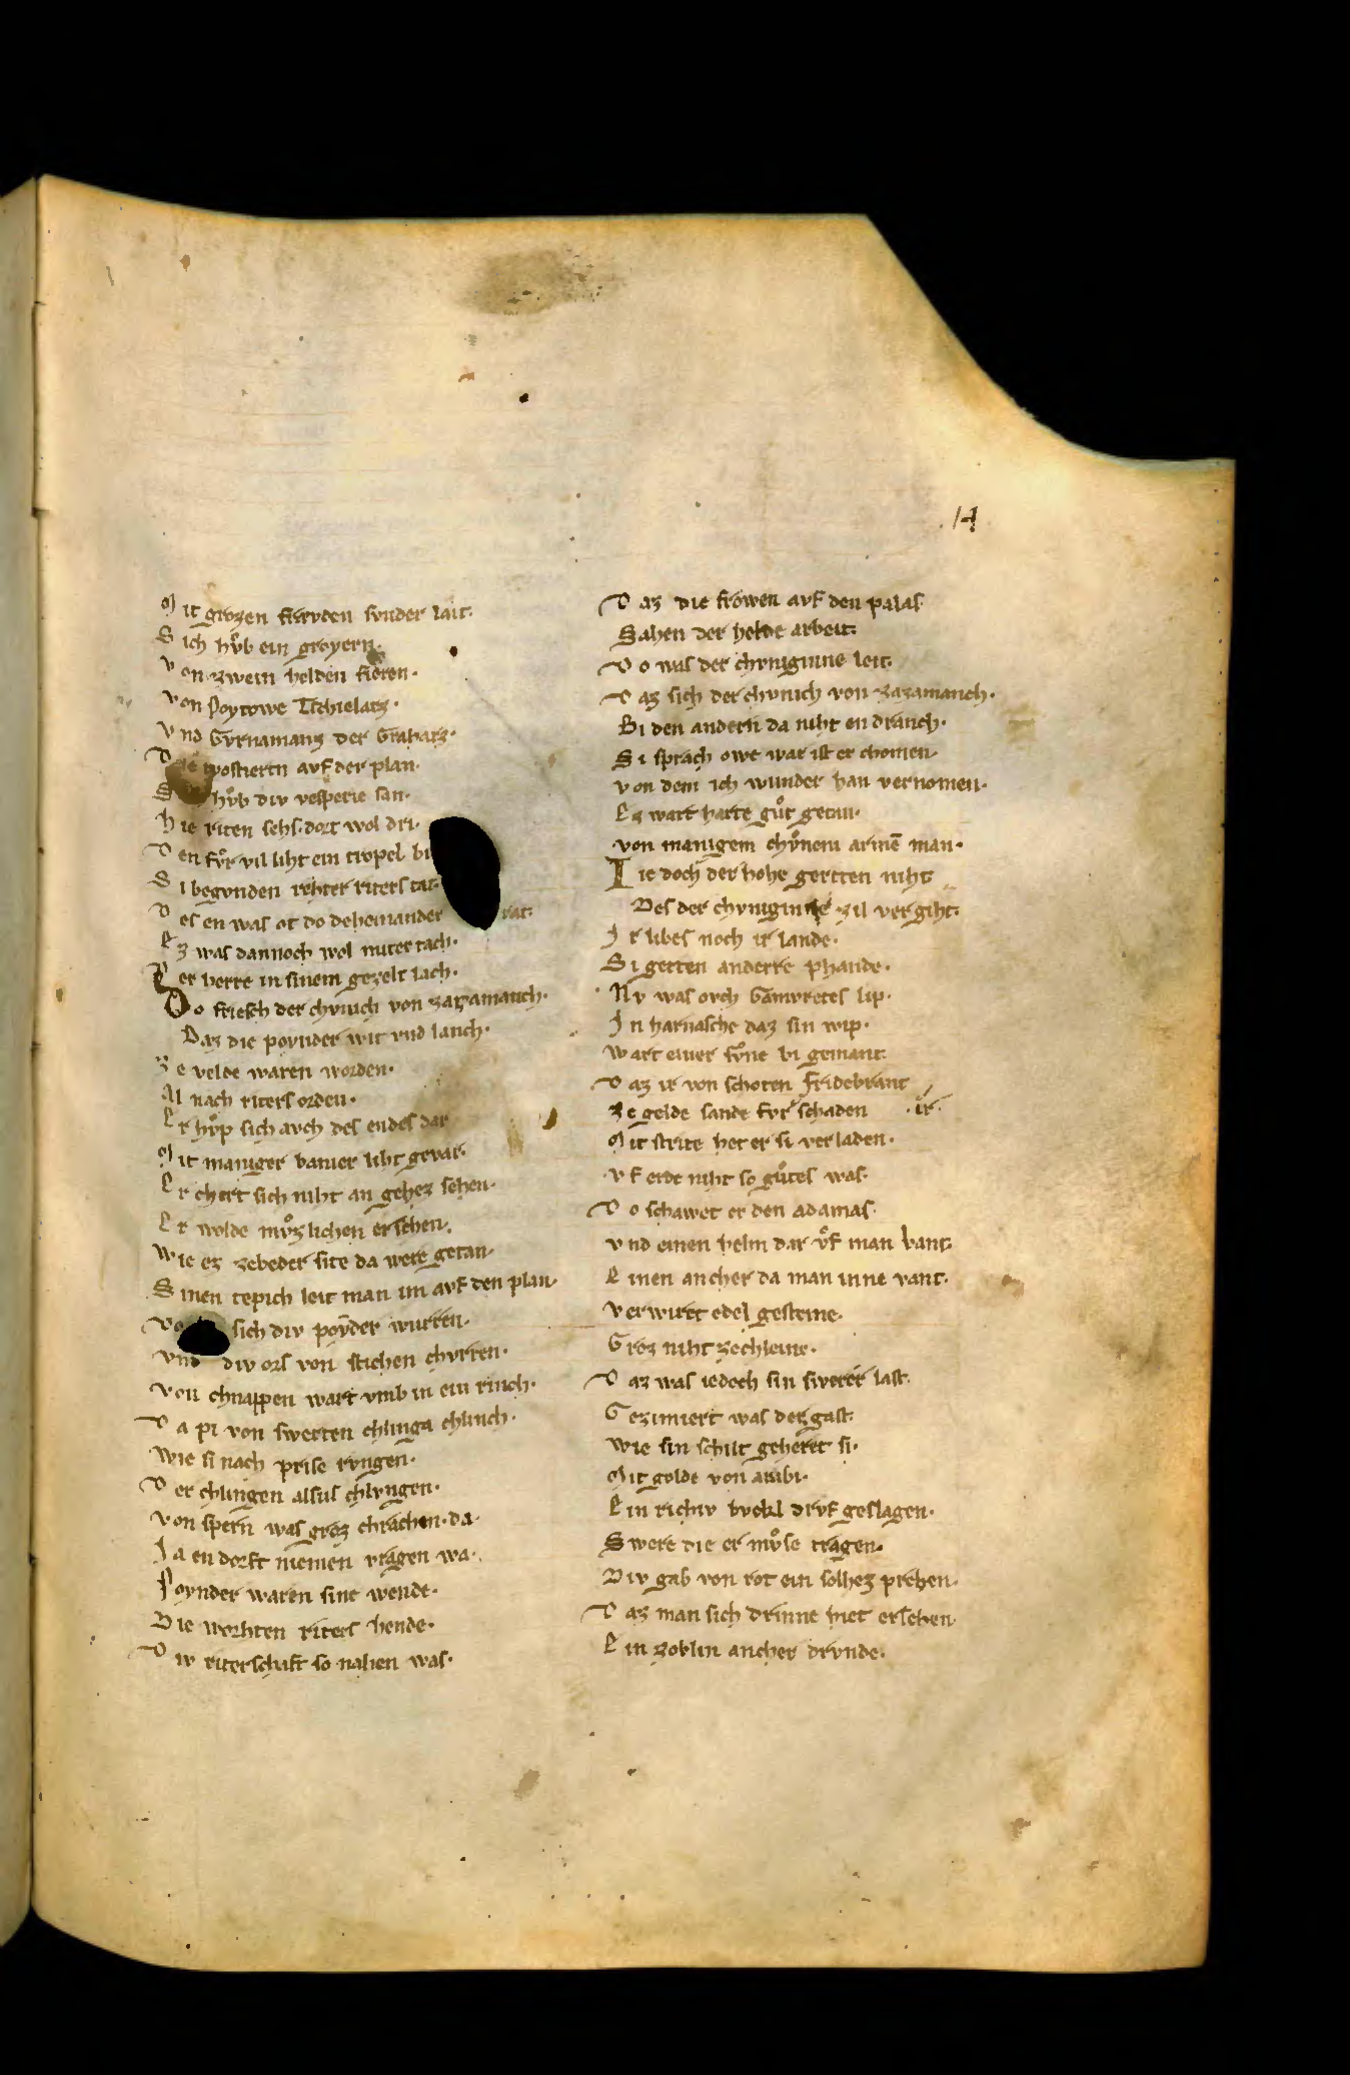 14
Mit grozen frevden svnder lait.
Sich hv̊b ein groyern.
Von zwein helden fieren.
Von Poytowe Tschielarz.
Vnd Gvrnamanz der Graharz.
Die tyostiern avf der plan.
hv̊b div vesperie san.
Hie riten sehs. dort wol dri.
Den fv̊r vil liht ein tropel bi
Si begvnden rehter riters tat.
Des en was ot do deheinander rat.
Ez was dannoch wol miter tach.
Der herre in sinem gezelt lach.
Do friesch der chvnich von zazamanch.
Daz die poynder wit vnd lanch.
Ze velde waren worden.
Al nach riters orden.
Er hv̊p sich avch des endes dar
Mit maniger banier liht gevar.
Er chert sich niht an gehez sehen.
Er wolde mv̊zlichen ersehen.
Wie ez zebeder site da were getan.
Sinen tepich leit man im avf den plan.
sich div poẏder wurren.
Vnd div ors von stichen chvrren.
Von chnappen wart vmb in ein rinch.
Da pi von swerten chlinga chlinch.
Wie si nach prise rvngen.
Der chlingen alsus chlvngen.
Von spern was groz chrachen. da.
Ja en dorft niemen vragen wa.
Poynder waren sine wende.
Die worhten riters hende.
Div riterschaft so nahen was.
Daz die frowen avf den palas
Sahen der helde arbeit.
Do was der chvniginne leit.
Daz sich der chvnich von zazamanch.
Bi den andern da niht en dranch.
Si sprach owe war ist er chomen.
Von dem ich wunder han vernomen.
Ez wart harte gv̊t getan.
Von manigem chv̊nem armē man.
Iedoch der hohe gertten niht
Des der chvniginne zil vergiht.
Ir libes noch ir lande.
Si gerten anderre phande.
Nv was ovch Gamvretes lip.
In harnasche daz sin wip.
Wart einer sv̊ne bi gemant.
Daz ir von schoten Fridebrant
Ze gelde sande fvr schaden . ir.
Mit strite het er si verladen.
Vf erde niht so gůtes was.
Do schawet er den adamas.
Vnd einen helm dar v̊f man bant.
Einen ancher da man inne vant.
Verwirct edel gesteine.
Groz niht zechleine.
Daz was iedoch sin swerer last.
Gezimiert was der gast.
Wie sin schilt geheret si.
Mit golde von arabi.
Ein richiv bvckl drvf geslagen.
Swere die er mv̊se tragen.
Div gab von rot ein solhez prehen.
Daz man sich drinne met ersehen.
Ein zoblin ancher drvnde.